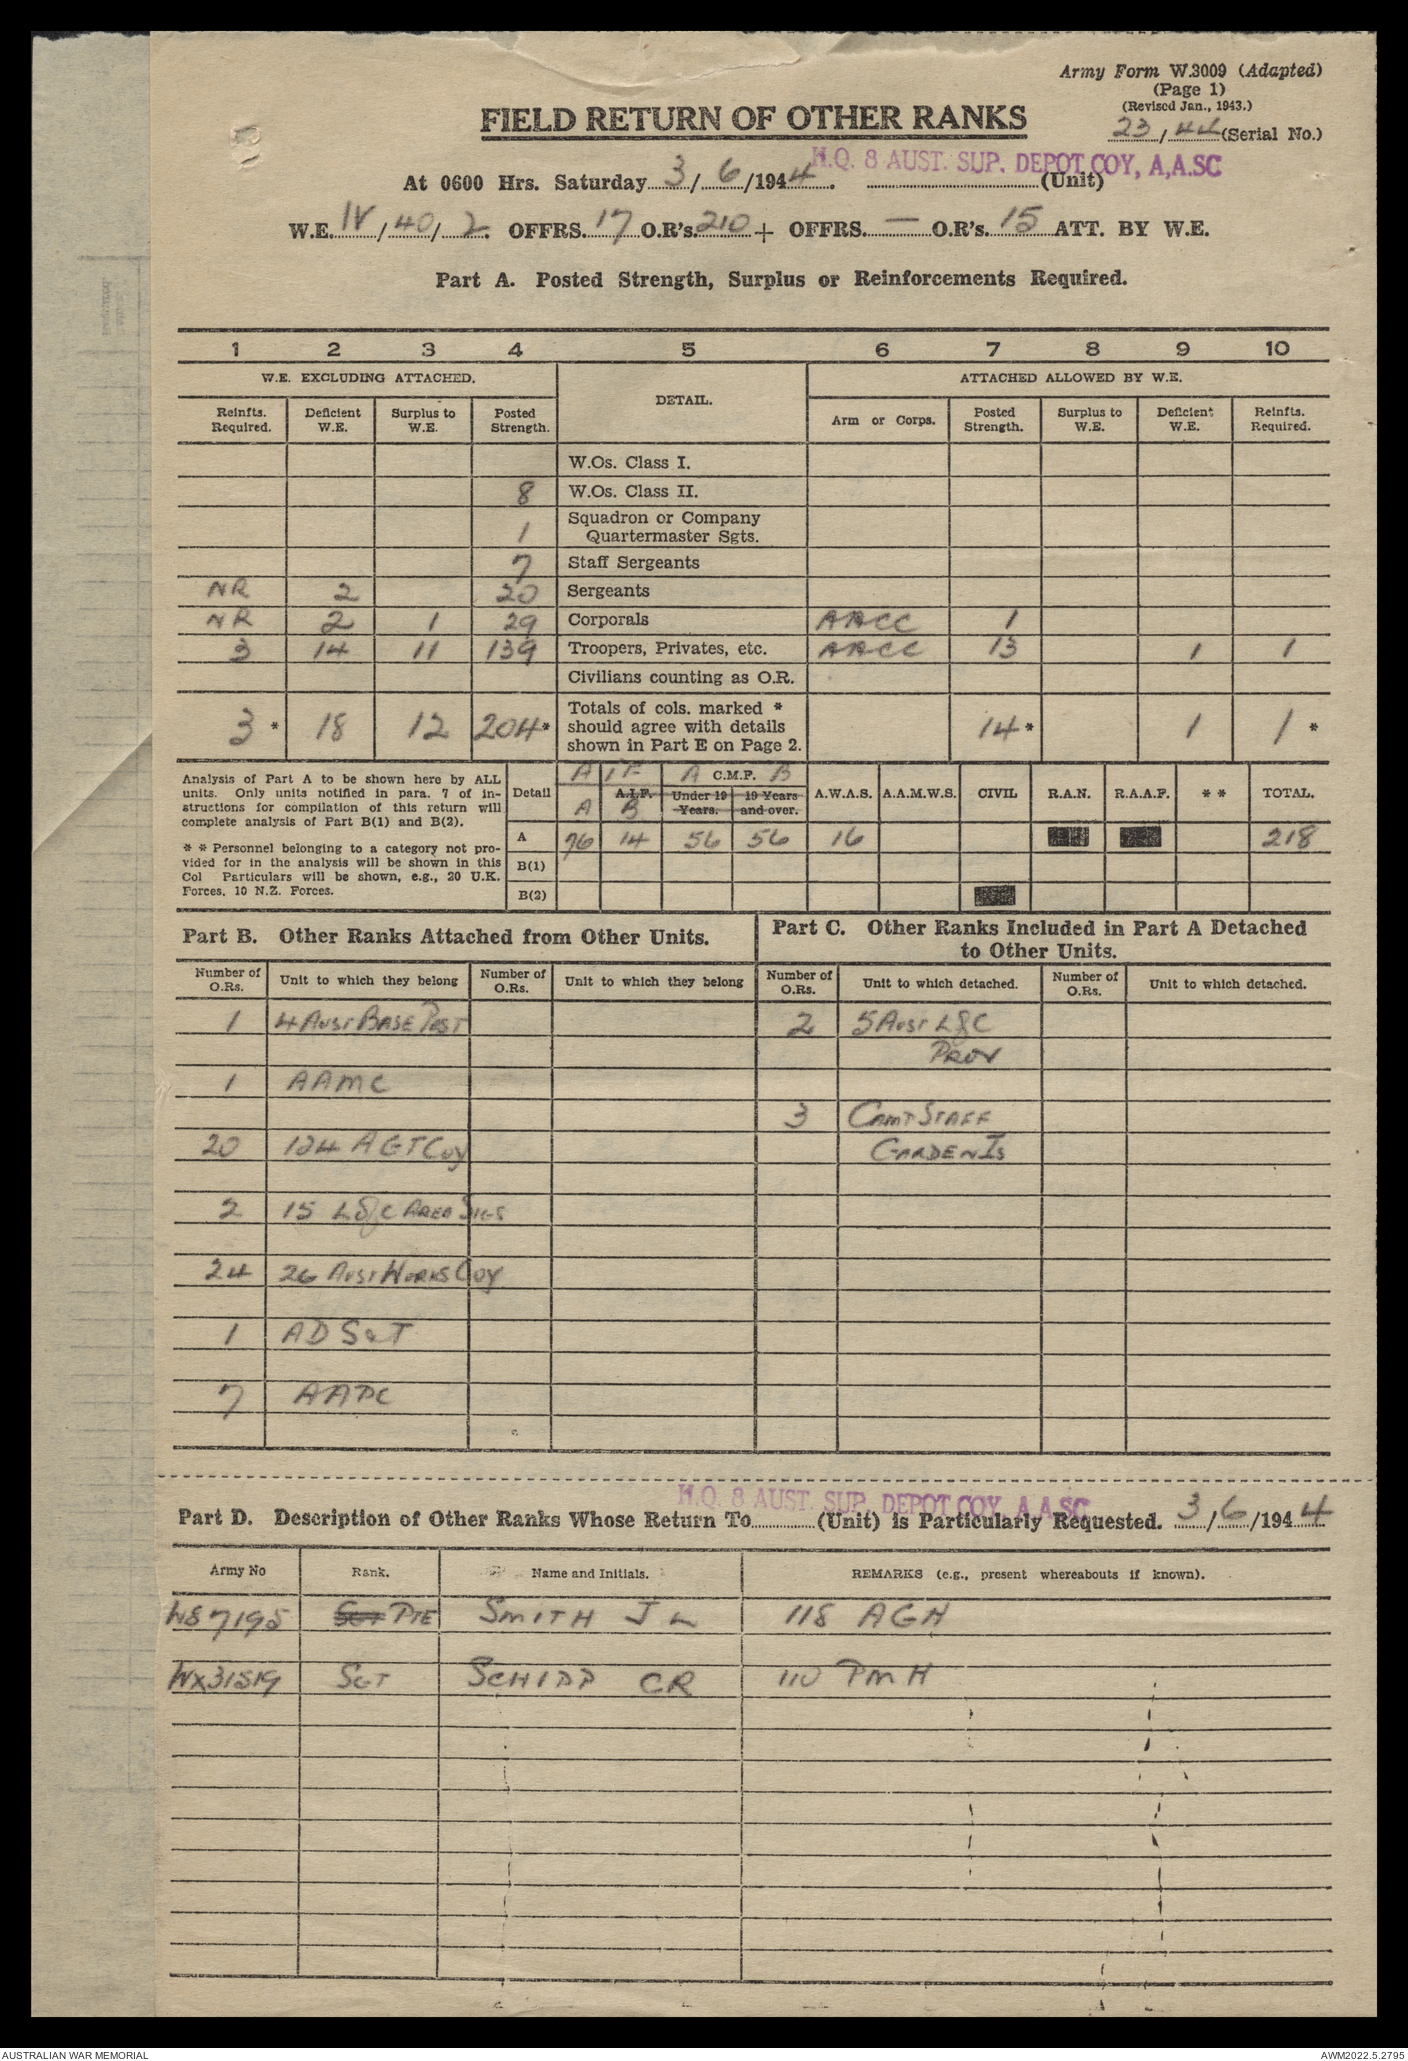 Army Form W.3009 (Adapted)
(Page 1)
(Revised Jan., 1943.)
FIELD RETURN OF OTHER RANKS
23/44 (Serial No.)
H.Q. 8 AUST. SUP. DEPOT COY, A.A.SC
At 0600 Hrs. Saturday 3/6/1944. (Unit)
W.E. IV/40/2. OFFRS. 17 O.R's. 210 + OFFRS. — O.R's. 15 ATT. BY W.E.
Part A. Posted Strength, Surplus or Reinforcements Required.
1 2 3 4 5 6 7 8 9 10
W.E. EXCLUDING ATTACHED. DETAIL. ATTACHED ALLOWED BY W.E.
Reinfts. Required. Deficient W.E. Surplus to W.E. Posted Strength. Arm or Corps. Posted Strength. Surplus to W.E. Deficient W.E. Reinfts. Required.
W.Os. Class I.
8 W.Os. Class II.
1 Squadron or Company Quartermaster Sgts.
7 Staff Sergeants
NR 2 20 Sergeants
NR 2 1 29 Corporals AACC 1
3 14 11 139 Troopers, Privates, etc. AACC 13 1 1
Civilians counting as O.R.
3 * 18 12 204 * Totals of cols. marked * should agree with details shown in Part E on Page 2. 14 * 1 1 *
Analysis of Part A to be shown here by ALL
units. Only units notified in para. 7 of in-
structions for compilation of this return will
complete analysis of Part B(1) and B(2).
* * Personnel belonging to a category not pro-
vided for in the analysis will be shown in this
Col Particulars will be shown, e.g., 20 U.K.
Forces, 10 N.Z. Forces.
A I F A C.M.F. B
Detail A.I.F. Under 19 Years. 19 Years and over. A.W.A.S. A.A.M.W.S. CIVIL R.A.N. R.A.A.F. * * TOTAL.
A B
A 76 14 56 56 16 218
B(1)
B(2)
Part B. Other Ranks Attached from Other Units.
Part C. Other Ranks Included in Part A Detached to Other Units.
Number of O.Rs. Unit to which they belong Number of O.Rs. Unit to which they belong Number of O.Rs. Unit to which detached. Number of O.Rs. Unit to which detached.
1 4 AUST BASE POST 2 5 AUST L of C
PROV
1 AAMC
3 CAMP STAFF
20 124 AGT COY GARDEN IS
2 15 L of C AREA SIGS
24 26 AUST WORKS COY
1 AD S & T
7 AAPC
H.Q. 8 AUST. SUP. DEPOT COY, A.A.SC
Part D. Description of Other Ranks Whose Return To (Unit) is Particularly Requested. 3/6/1944
Army No Rank. Name and Initials. REMARKS (e.g., present whereabouts if known).
W87195 SGT PTE SMITH J L 118 AGH
WX31519 SGT SCHIPP CR 110 PMH
AUSTRALIAN WAR MEMORIAL
AWM2022.5.2795